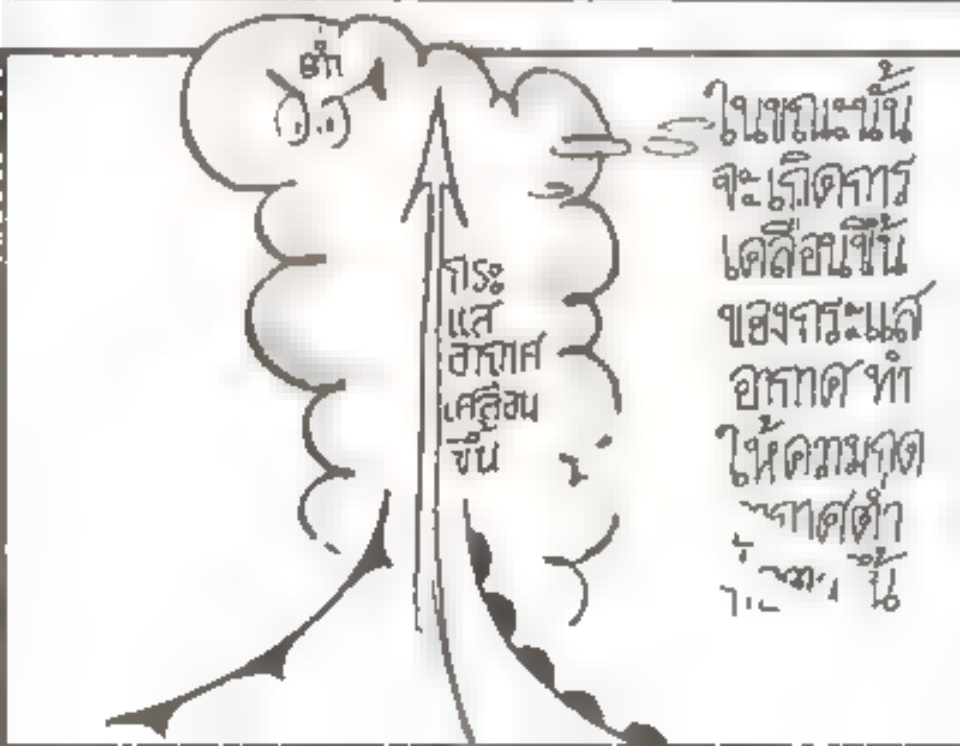 ต่ำ
กระ
แส
อากาศ
เคลื่อน
ขึ้น
ในขณะนั้น
จะเกิดการ
เคลื่อนขึ้น
ของกระแส
อากาศ ทำ
ให้ความกด
อากาศต่ำ